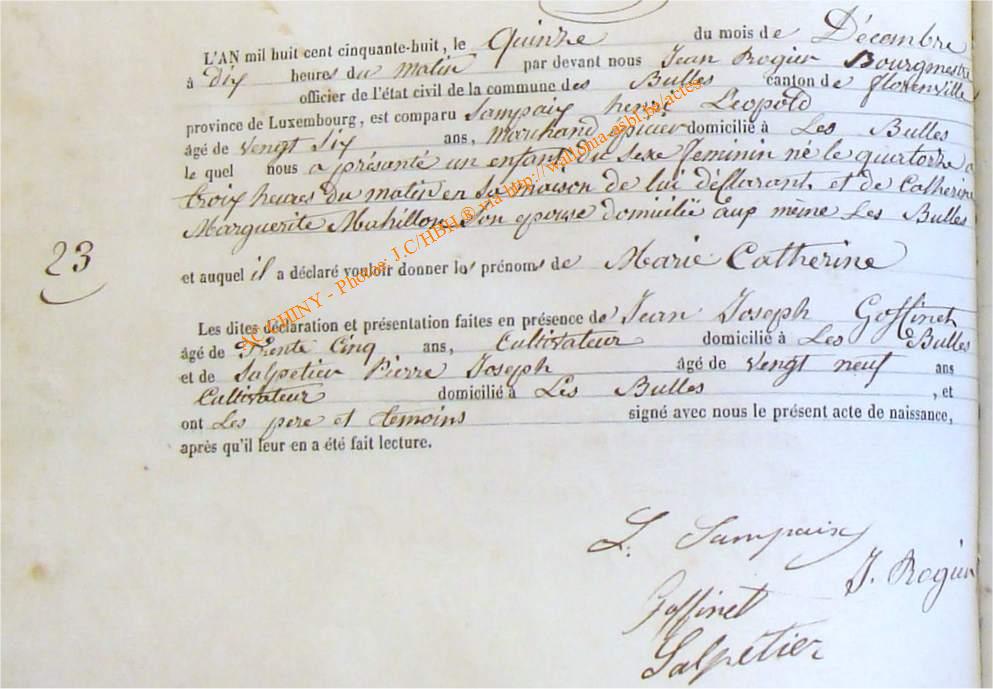 L'AN mil huit cent cinquante-huit, le Quinze du mois de Décembre
à Dix heures du matin par devant nous Jean Rogier Bourgmestre
officier de l'état civil de la commune des Bulles canton de florenville
province de Luxembourg, est comparu Sampaix henri Leopold
âgé de vengt Six ans, Marchand épicier domicilié à Les Bulles
le quel nous a présanté un enfant du sexe feminin né le quartorze a
troix heures du matin en sa maison de lui déclarant et de Catherine
Marguerite Mahillon Son epouse domicilié aux même Les Bulles
23
et auquel il a déclaré vouloir donner les prénoms de Marie Catherine
Les dites déclaration et présentation faites en présence de Jean Joseph Goffinet
âgé de Trente Cinq ans, Cultivateur domicilié à Les Bulles
et de Salpetier Pierre Joseph âgé de vengt neuf ans
Cultivateur domicilié à Les Bulles , et
ont Les pere et temoins signé avec nous le présent acte de naissance,
après qu'il leur en a été fait lecture.
L. Sampaix
J. Rogier
Goffinet
Salpetier
AC CHINY - Photos: J.C/HBH ® via http://wallonia-asbl.be/actes